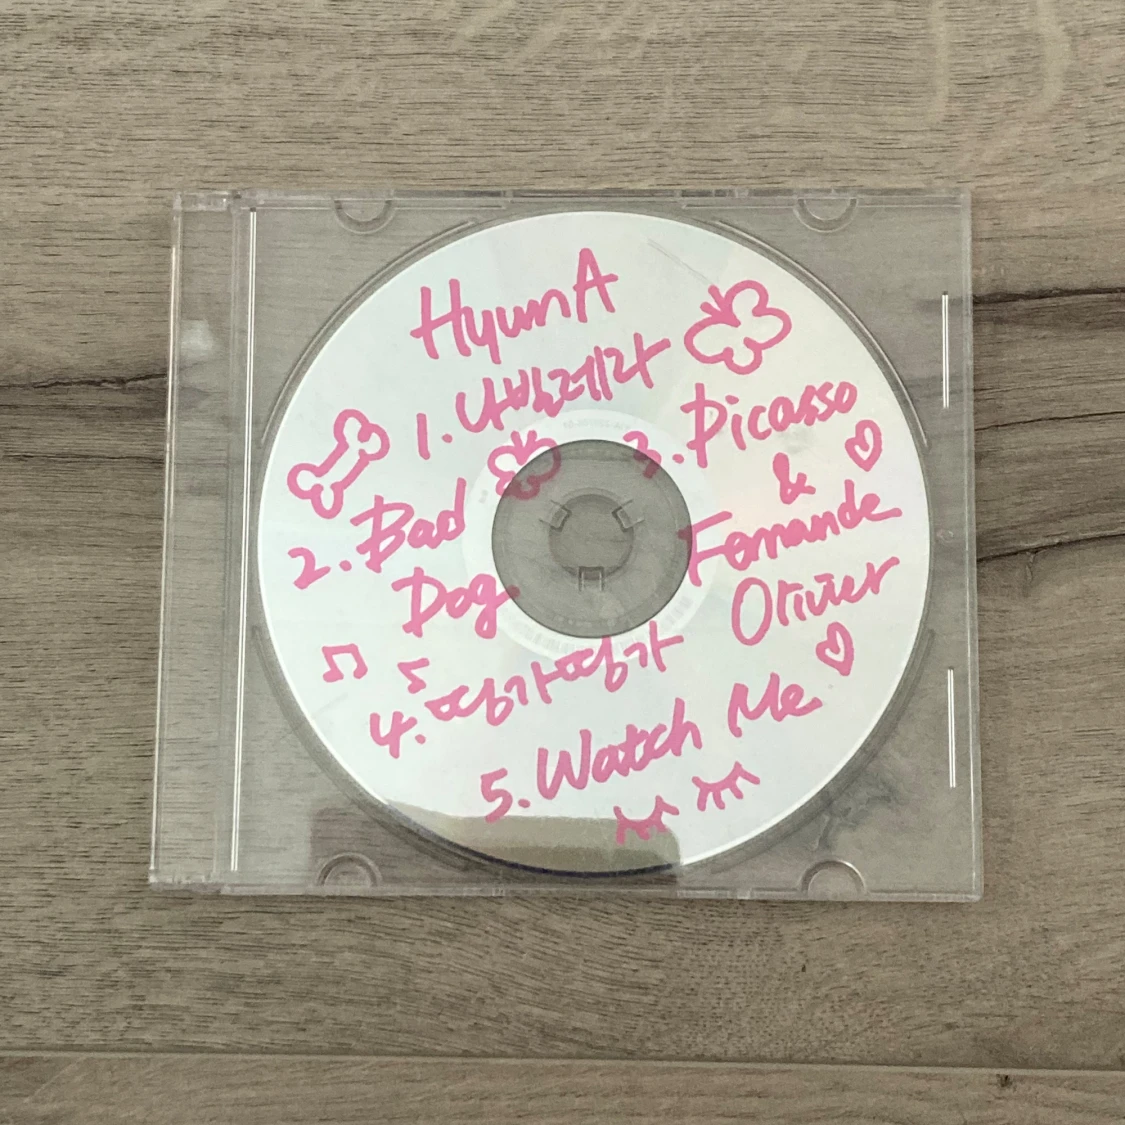 HyunA
1. 나빌레라
2. Bad
Dog.
3. Picasso
&
Fernande
Olivier
4. 띵가띵가
5. Watch Me